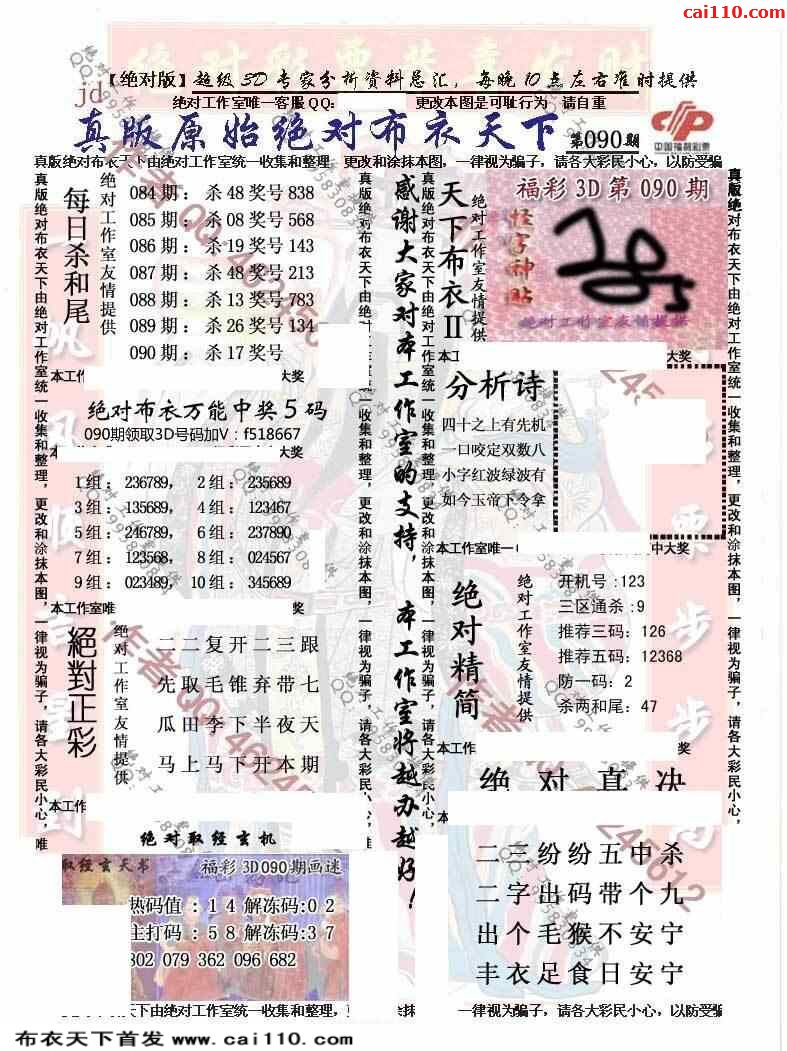 cai110.com
【绝对版】超级3D专家分析资料总汇，每晚10点左右准时提供
jd
绝对工作室唯一客服QQ: 更改本图是可耻行为 请自重
真版原始绝对布衣天下 第090期
中国福利彩票
真版绝对布衣天下由绝对工作室统一收集和整理，更改和涂抹本图，一律视为骗子，请各大彩民小心，以防受骗
每日杀和尾
绝对工作室友情提供
084期：杀48奖号838
085期：杀08奖号568
086期：杀19奖号143
087期：杀48奖号213
088期：杀13奖号783
089期：杀26奖号134
090期：杀17奖号
本工作
大奖
绝对布衣万能中奖5码
090期领取3D号码加V：f518667
大奖
1组：236789， 2组：235689
3组：135689， 4组：123467
5组：246789， 6组：237890
7组：123568， 8组：024567
9组：023489， 10组：345689
本工作室唯
奖
絕對正彩
绝对工作室友情提供
二二复开二三跟
先取毛锥弃带七
瓜田李下半夜天
马上马下开本期
本工作
绝对取经玄机
取经玄天书 福彩3D090期画迷
热码值：14解冻码:02
主打码：58解冻码:37
802 079 362 096 682
感谢大家对本工作室的支持，本工作室将越办越好！
天下布衣II
绝对工作室友情提供
福彩3D第090期
怪字神贴
绝对工作室友情提供
本工
大奖
分析诗
四十之上有先机
一口咬定双数八
小字红波绿波有
如今玉帝下令拿
本工作室唯一
中大奖
绝对精简
绝对工作室友情提供
开机号:123
三区通杀:9
推荐三码：126
推荐五码：12368
防一码：2
杀两和尾：47
本工作
奖
绝对真决
二三纷纷五中杀
二字出码带个九
出个毛猴不安宁
丰衣足食日安宁
真版绝对布衣天下由绝对工作室统一收集和整理，更改和涂抹本图，一律视为骗子，请各大彩民小心，唯
真版绝对布衣天下由绝对工作室统一收集和整理，更改和涂抹本图，一律视为骗子，请各大彩民小心，
天下由绝对工作室统一收集和整理，更
涂抹
一律视为骗子，请各大彩民小心，以防受骗
布衣天下首发 www.cai110.com